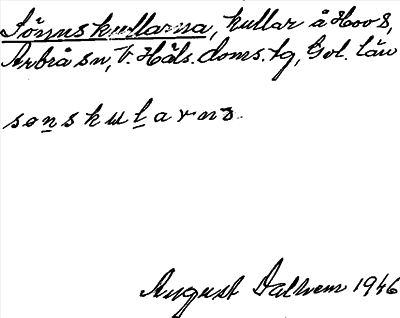 Sönnskullarna, kullar å Hov 8,
Arbrå sn, V. Häls. doms. tg, Gvl. län
sønskularna
August Dalhem 1946